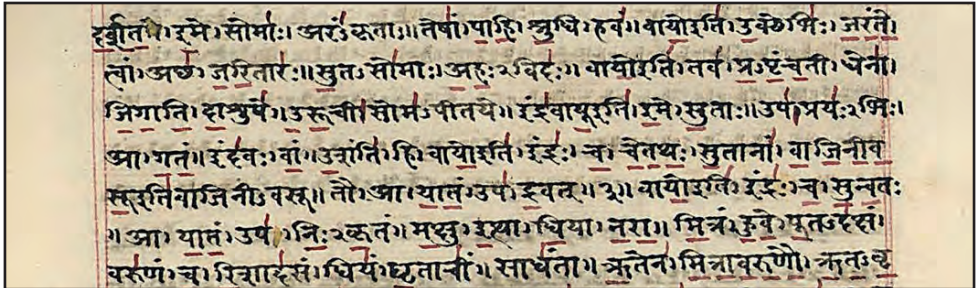 दर्शत। इमे। सोमाः। अरंऽकृताः॥ तेषां। पाहि। श्रुधि। हवं॥ वायो इति। उक्थेभिः। जरंते।
त्वां। अछ। जरितारः॥ सुतऽसोमाः। अहःऽविदः॥ वायो इति। तव। प्रऽपृंचती। धेना।
जिगाति। दाशुषे॥ उरूची। सोमऽपीतये॥ इंद्रवायू इति। इमे। सुताः॥ उप। प्रयःऽभिः।
आ। गतं॥ इंदवः। वां। उशंति। हि। वायो इति। इंद्रः। च। चेतथः। सुतानां। वाजिनीव
सू इति वाजिनीऽवसू॥ तौ। आ। यातं। उप। द्रवत्॥ ३॥ वायो इति। इंद्रः। च। सुन्वतः
॥ आ। यातं। उप। निःऽकृतं॥ मक्षु। इत्था। धिया। नरा॥ मित्रं। हुवे। पूतऽदक्षं।
वरुणं। च। रिशादसं। धियं। घृताचीं। साधंता॥ ऋतेन। मित्रावरुणौ। ऋतऽवृ